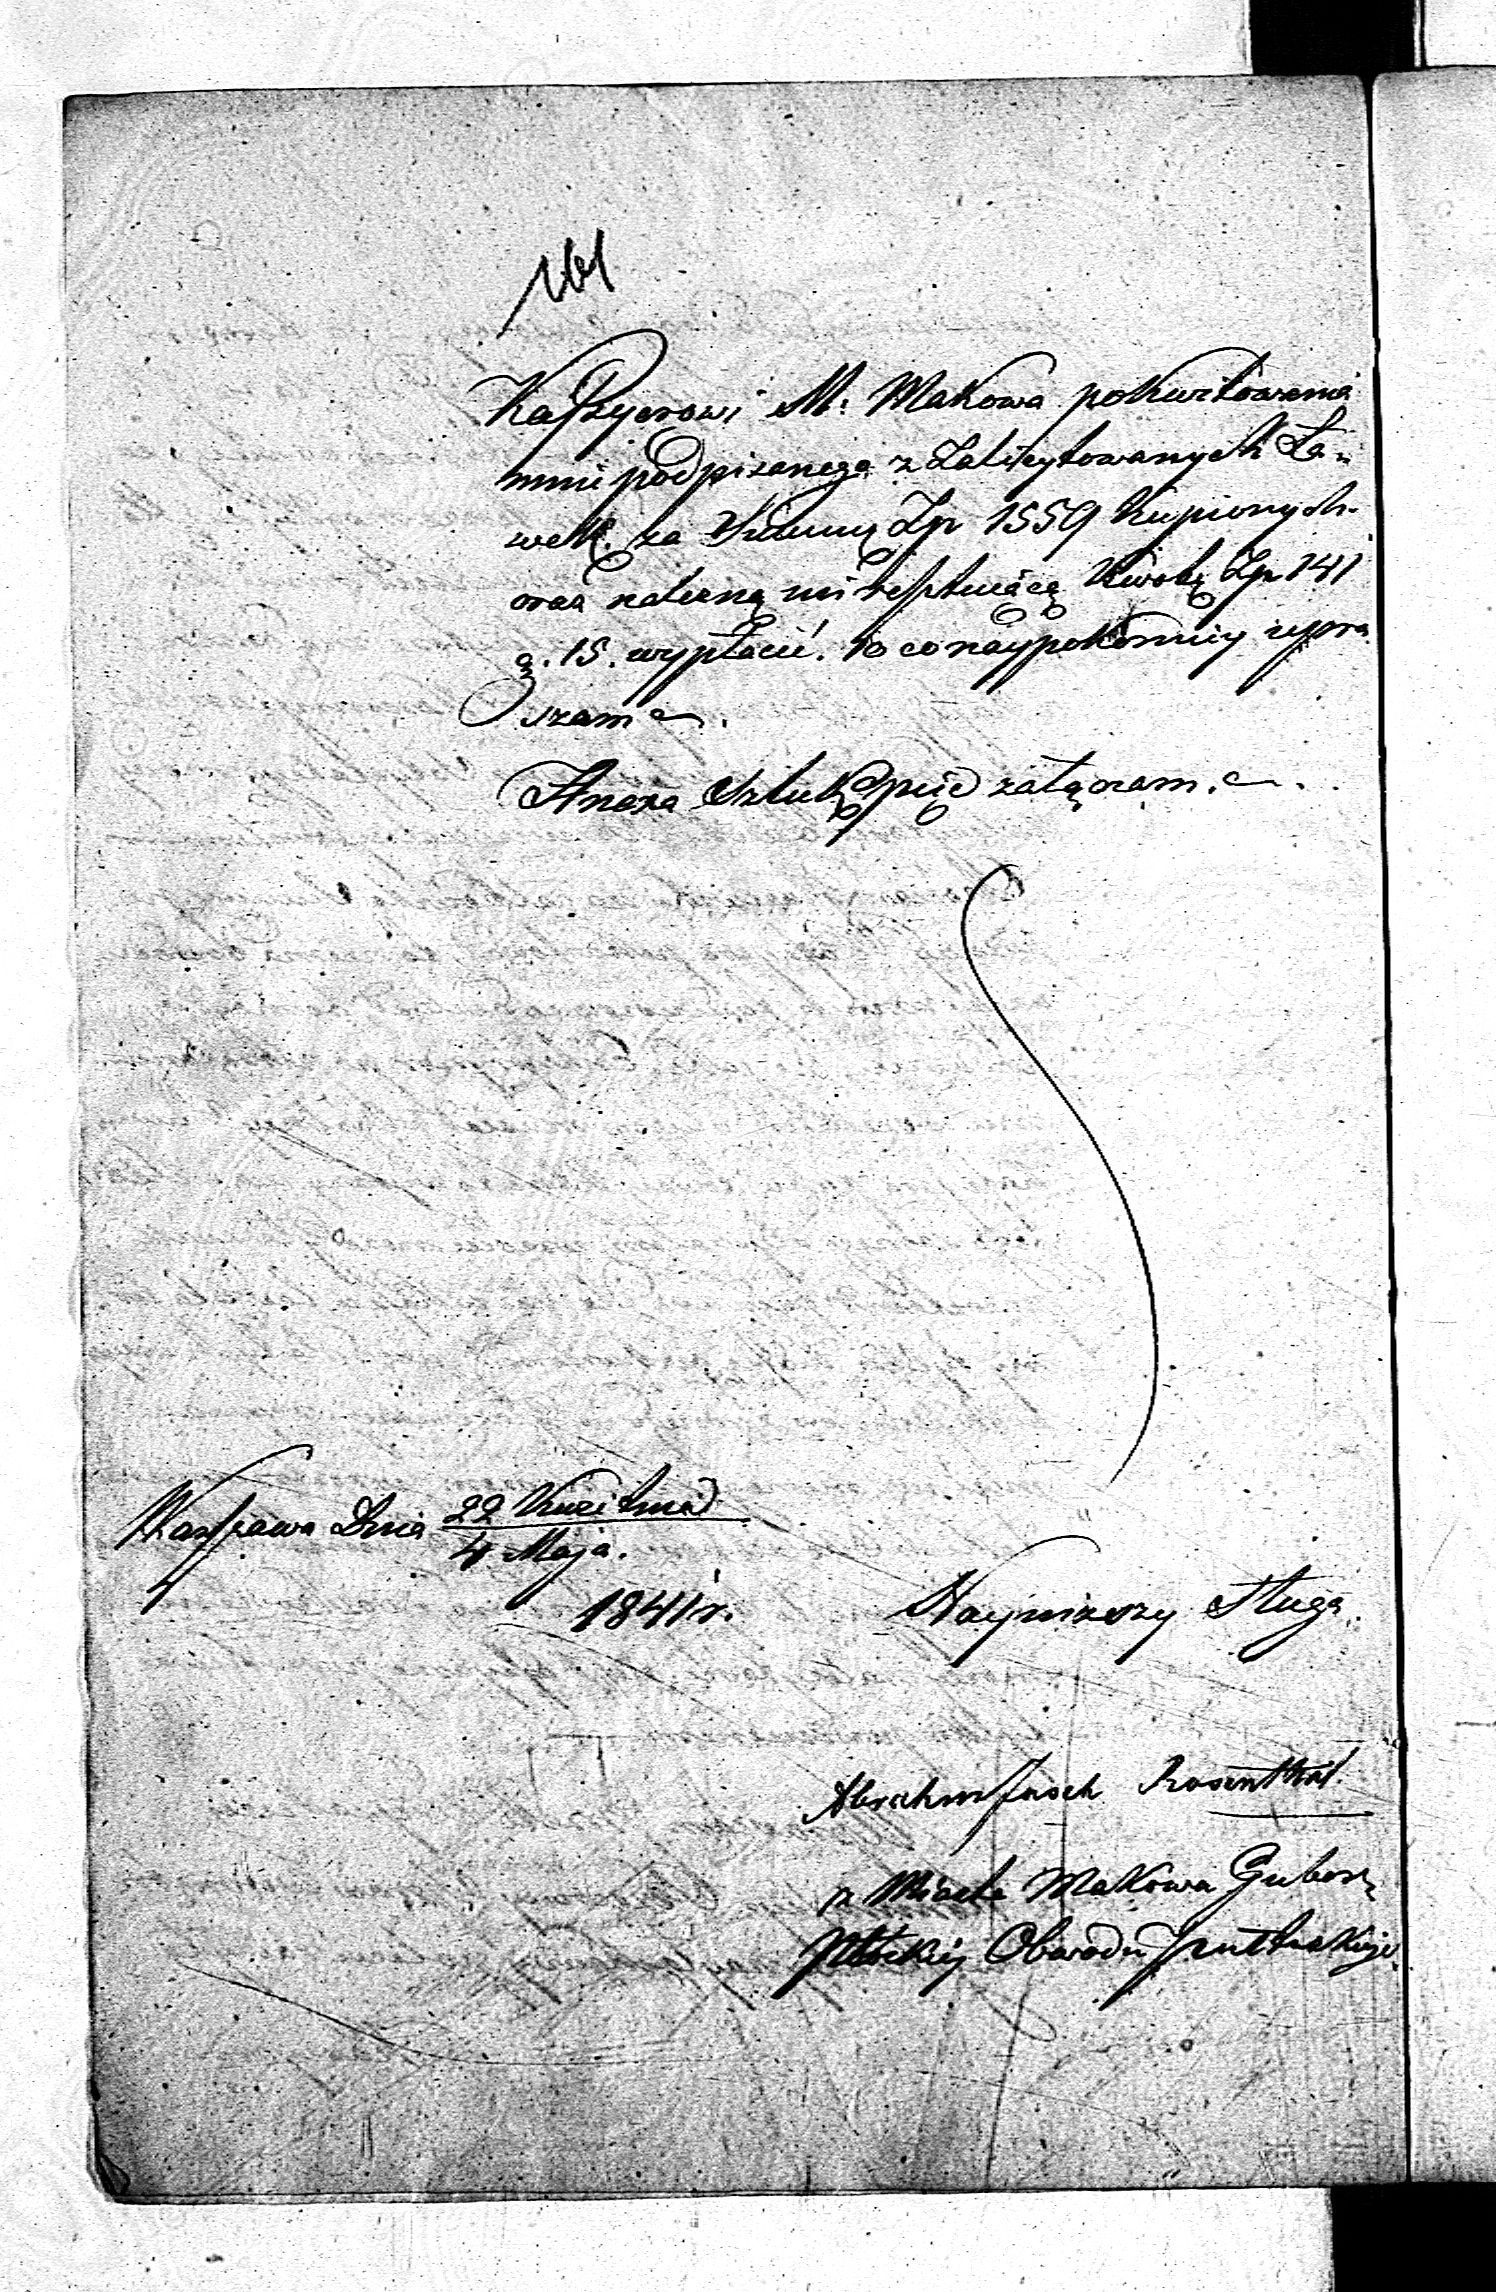 161
Kaſsyerowi M. Makowa pokwitowania
mnie podpisanego z Zalicytowanych Ła-
wek. za Summę Zp 1559 kupionych
oraz należną mi resztuiącą Kwotę Zp 141
g. 15. wypłacić. to co naypokorniey upra
szam.
Anexa Sztuk pięć załączam.
Warſzawa Dnia 22 Kwietnia
4 Maja.
1841 r.
Nayniższy Sługa
Abrahm Rosenthal.
z Miasta Makowa Guber:
Płockiey Obwodu Pułtuskiego